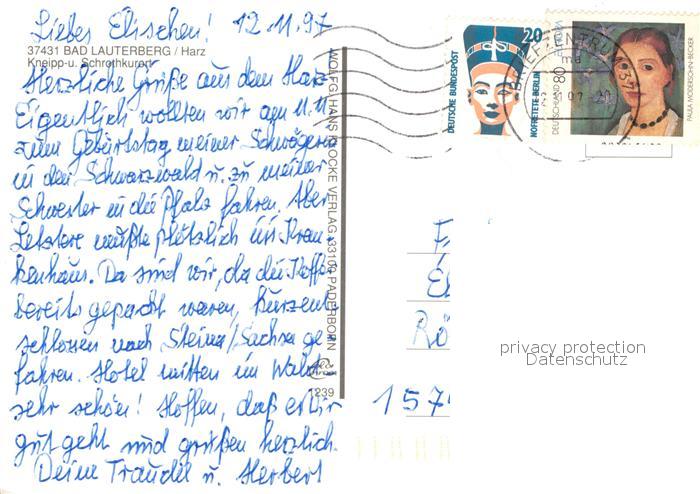 Liebes Elischen! 12.11.97
37431 BAD LAUTERBERG / Harz
Kneipp-u. Schrothkurort
Herzliche Grüße aus dem Harz
Eigentlich wollten wir am 11.11
zum Geburtstag meiner Schwägerin
in den Schwarzwald u. zu meiner
Schwester in die Pfalz fahren. Aber
Letztere mußte plötzlich ins Kran-
kenhaus. Da sind wir, da die Koffer
bereits gepackt waren, kurzent-
schlossen nach Steina/Sachsa ge
fahren. Hotel mitten im Wald
sehr schön! Hoffen, daß es Dir
gut geht und grüßen herzlich
Deine Traudel u. Herbert
WOLFGANG HANS KLOCKE VERLAG · 33100 PADERBORN
1239
DEUTSCHE BUNDESPOST
20
NOFRETETE · BERLIN
BRIEFZENTRUM 37
ma
DEUTSCHLAND 80
PAULA MODERSOHN-BECKER
Rö
157
privacy protection
Datenschutz